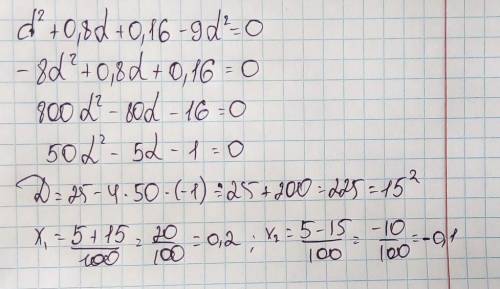 d² + 0,8d + 0,16 - 9d² = 0
- 8d² + 0,8d + 0,16 = 0
800d² - 80d - 16 = 0
50d² - 5d - 1 = 0
D = 25 - 4 · 50 · (-1) = 25 + 200 = 225 = 15²
x₁ = (5 + 15)/100 = 20/100 = 0,2 ; x₂ = (5 - 15)/100 = -10/100 = -0,1